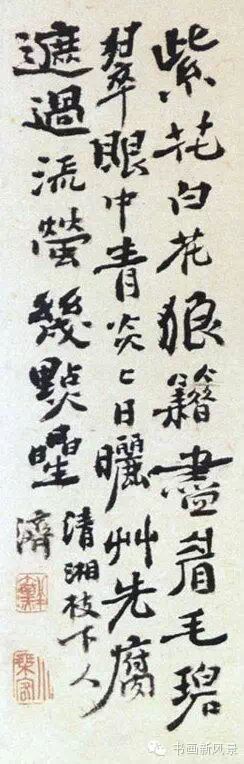 紫花白花狼籍盡眉毛碧
翠眼中青炎〻日曬艸先腐
遮過流螢幾點星
清湘枝下人
濟
书画新风景